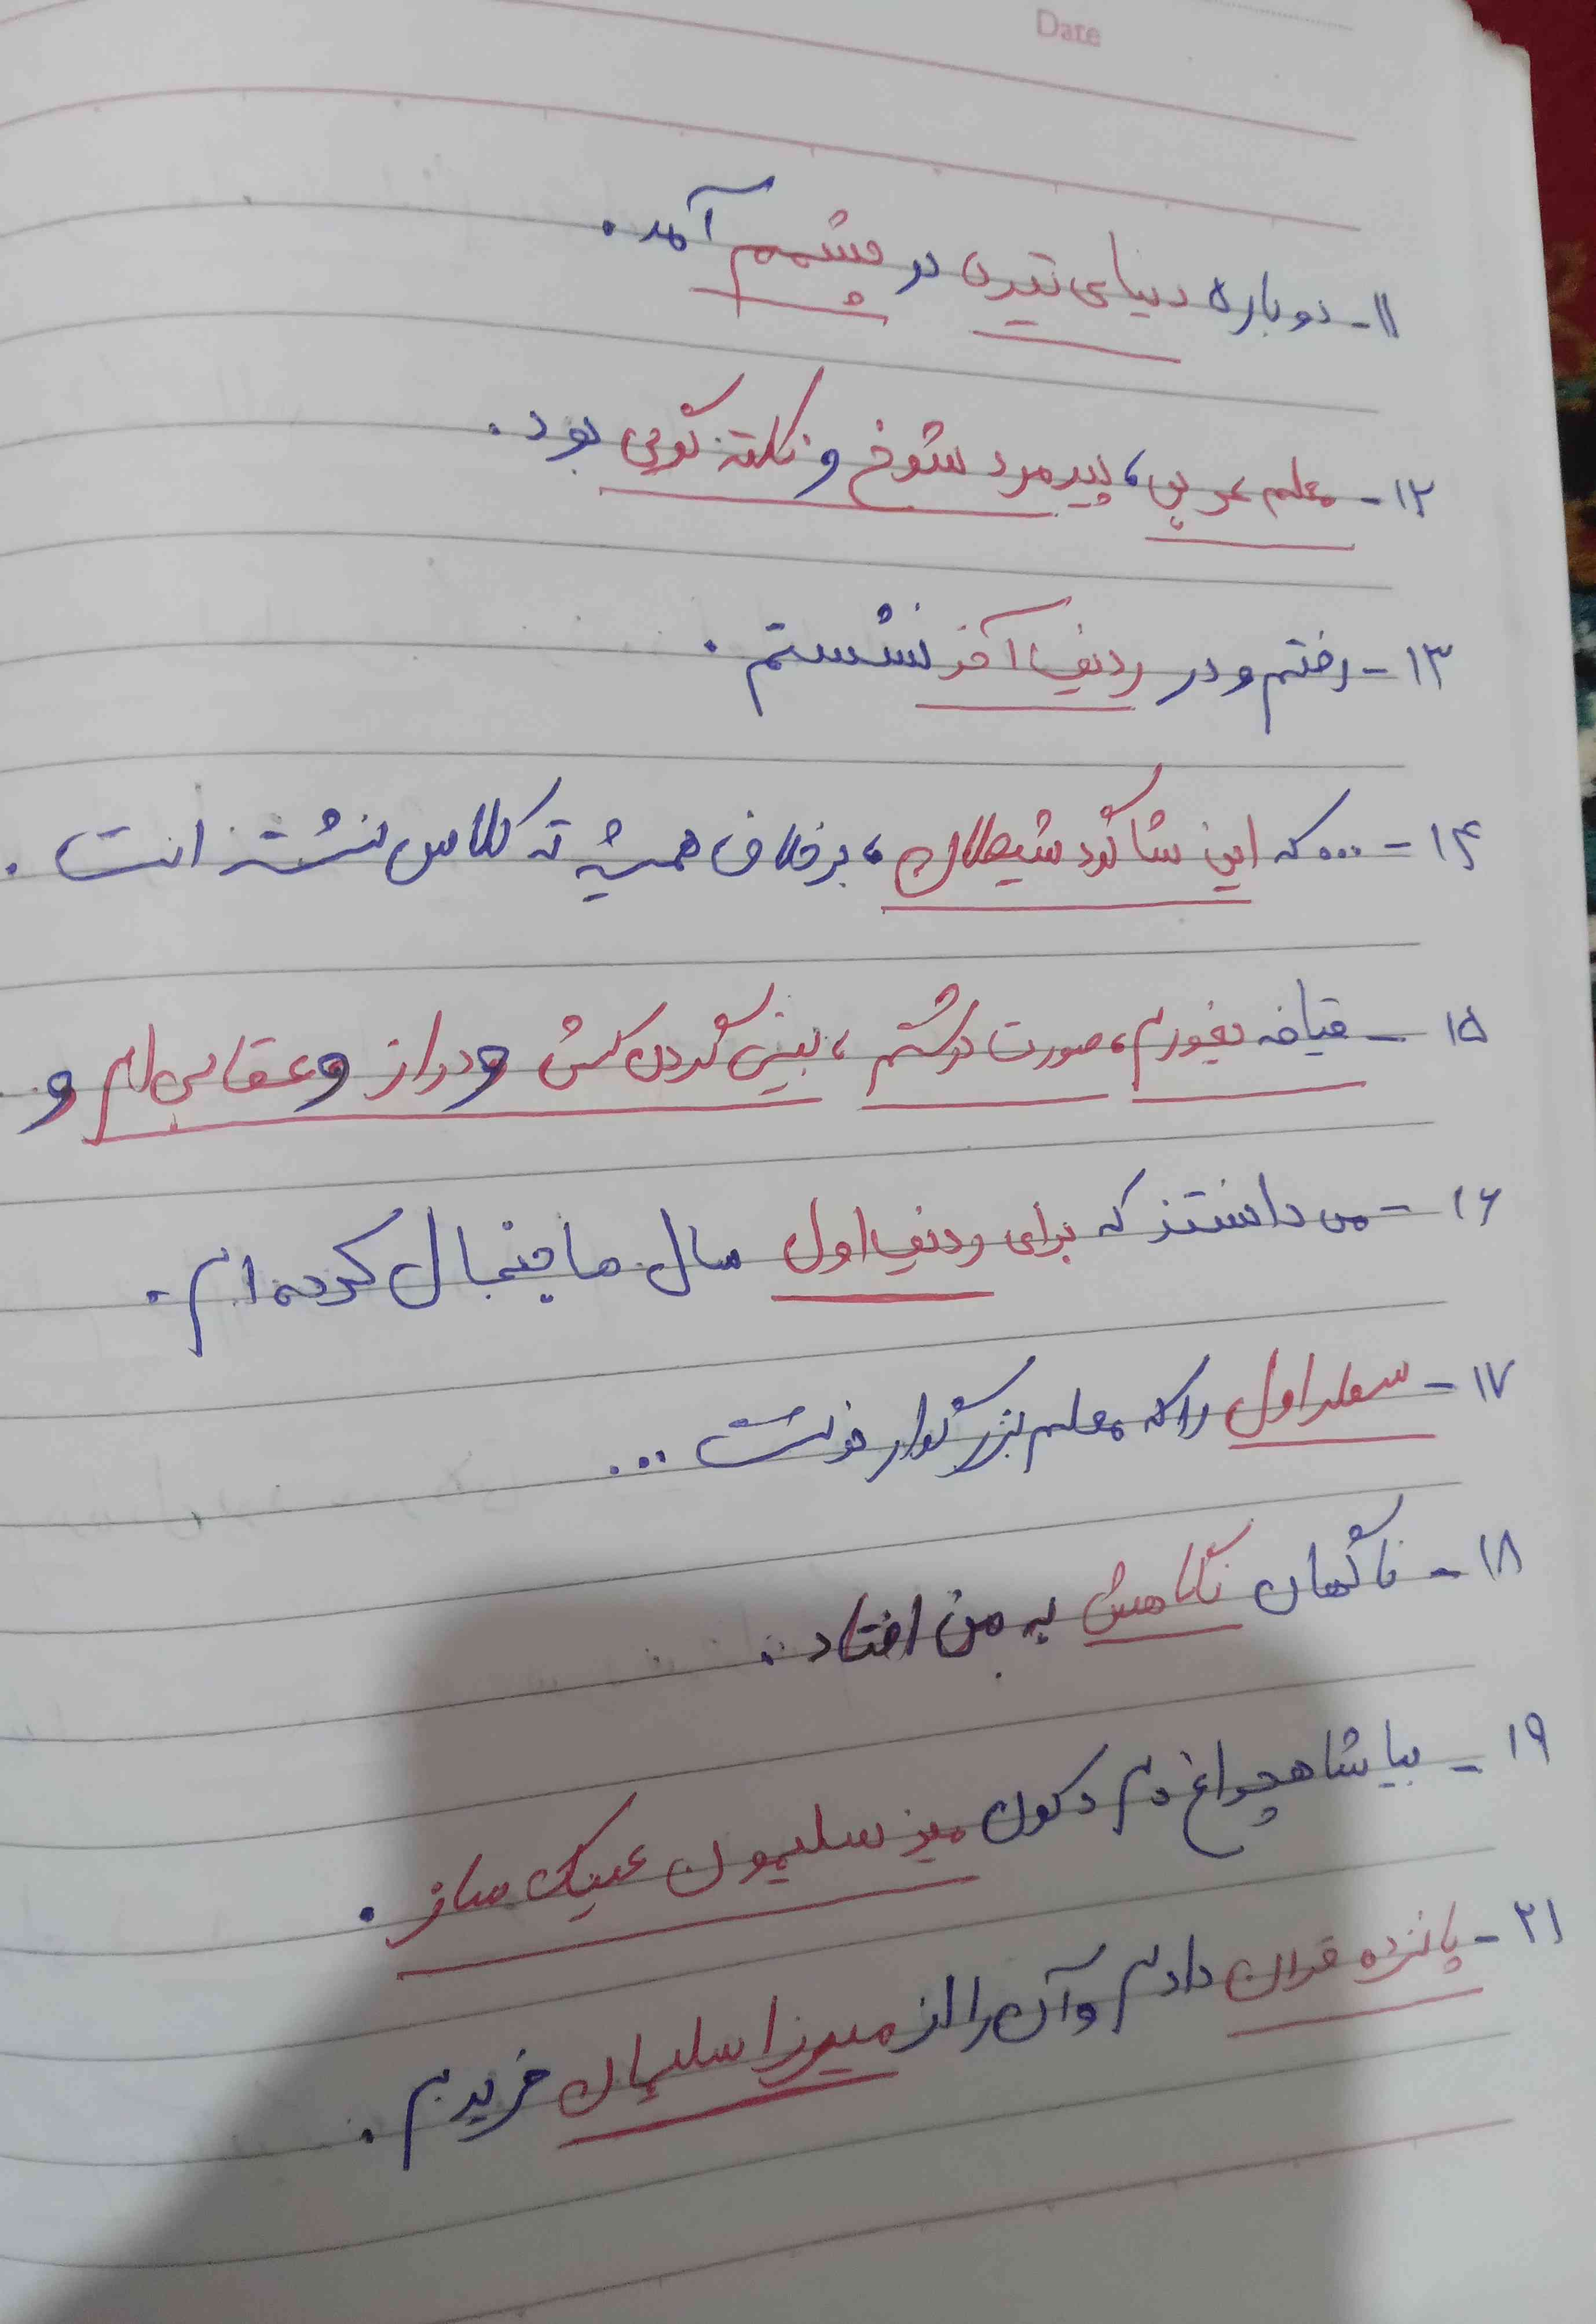 Date
۱۱- دوباره دنیای تیره در چشمم آمد.
۱۲- معلم عربی، پیرمرد شوخ و نکته گویی بود.
۱۳- رفتم و در ردیف آخر نشستم.
۱۴- ...که این شاگرد شیطان، برخلاف همیشه ته کلاس نشسته است.
۱۵- قیافه یغورم، صورت درشتم، بینی گردن کش و دراز و عقابی ام و
۱۶- می دانستند که برای ردیف اول سال ها جنجال کرده ام.
۱۷- سطر اول را که معلم بزرگوار نوشت ...
۱۸- ناگهان نگاهش به من افتاد.
۱۹- بیا شاهچراغ دم دکون میز سلیمون عینک ساز.
۲۱- پانزده قران دادم و آن را از میرزا سلیمان خریدم.